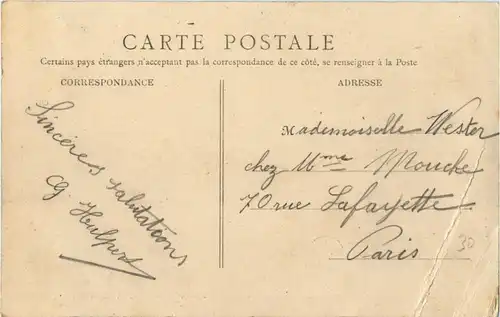 CARTE POSTALE
Certains pays étrangers n'acceptant pas la correspondance de ce côté, se renseigner à la Poste
CORRESPONDANCE
Sincères salutations
ADRESSE
Mademoiselle Wester
chez Mme Mouche
70 rue Lafayette
Paris
30